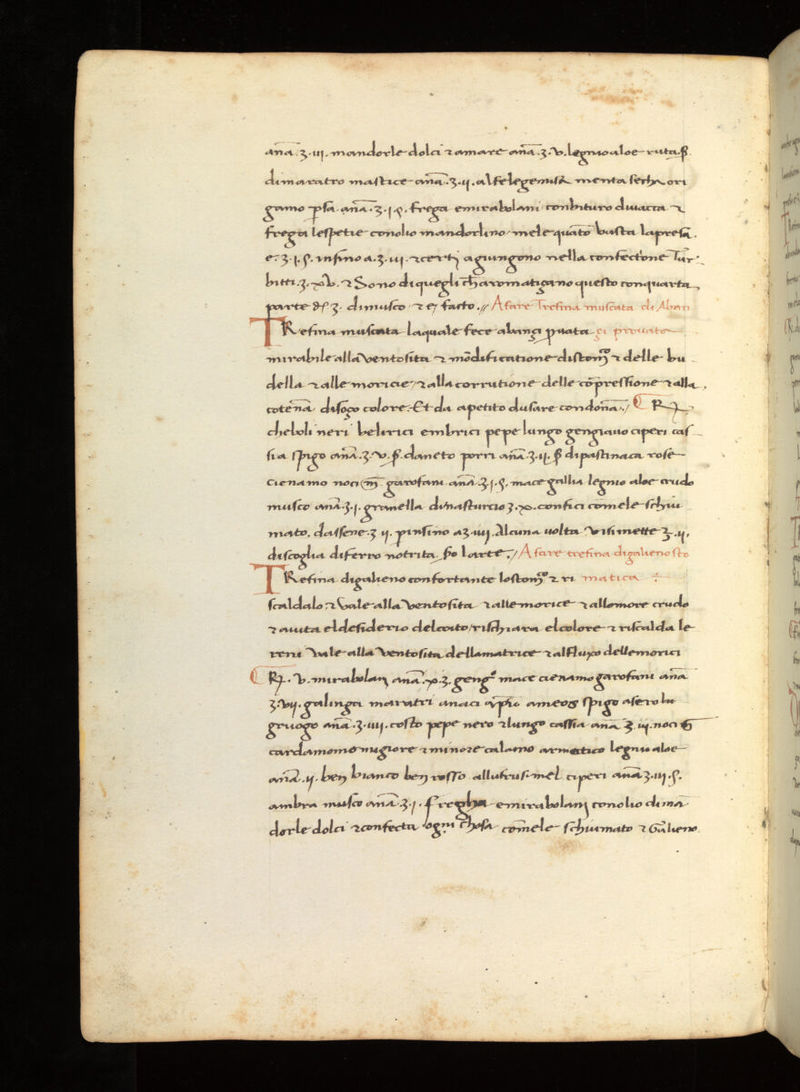 ana. ʒ. iij. mandorle dolci ⁊ amare ana. ʒ. v. legnio aloe ruta. p̃
di maratro mastice ana. ʒ. ij. alfelegemisk menta serhy ori
gamo psa ana. ʒ. j. ҫ. frega emirabolani conbituro di uacca ⁊
frega lespetie conolio mandorlino mele quāto basta lapresa
e. ʒ. j. ҫ. infino a. ʒ. iij. ⁊ certj agiungono nella confectione Tur
bitti. ʒ. ⁊ Sono di quegli ch aromatizano questo con quarta
parte ʒ. di musco ⁊ e fatto. // A fare Trefina muscata di Aban
TRefina muscata laquale fece abanzi puata zi prouata
mirabile alla ventosita ⁊ modificatione distom̃ ⁊ delle bu
della ⁊ alle morici ⁊ alla corrutione delle cōpressione ⁊ alla
cotena di sozo colore. Et da apetito di usare con dona. / ℞
chieboli neri belirici embrici pepe lungo gengiauo ciperi cas
sia spigo ana. ʒ. v. p̃. d aneto porri ana. ʒ. ij. p̃ di pastinaca rose
cienamo noci m̃ garofani ana. ʒ. j. ҫ. mace gallia legnio aloe crudo
musco ana. ʒ. j. granella di nasturcio ʒ. confici comele schiu
mato. dassene. ʒ ij. p infino aʒ iiij. Alcuna uolta vi si mette ʒ. ij.
di scoglia di ferro notrita so larte. / A fare trefina di galieno sto
TRefina di galieno confortante lo stom̃ ⁊ ri matica
scaldalo ⁊ vale alla ventosita ⁊ alle morice ⁊ allomore crudo
⁊ aiuta el desiderio del coito rischiara el colore ⁊ riscalda le
reni Vale alla ventosita della matrice ⁊ al fluxo delle morici
℞. v. mirabolanj ana. ʒ. geng̃ mace cienamo garofani ana
ʒ. vij. galinga maratri anaci appio ameos spigo asero ba
gruogo ana. ʒ. iiij. costo pepe nero ⁊ lungo cassia ana ʒ. iij. noci m̃
cardamomo maggiore ⁊ minore calamo aromatico legnio aloe
ana. ij. ben bianco ben rosso ciperi ana ʒ. iij. ҫ.
ambra musco ana. ʒ. j. fregha emirabolanj conolio di ma
dorle dolci ⁊ confecta ogni chosa comele schiumato ⁊ Galieno